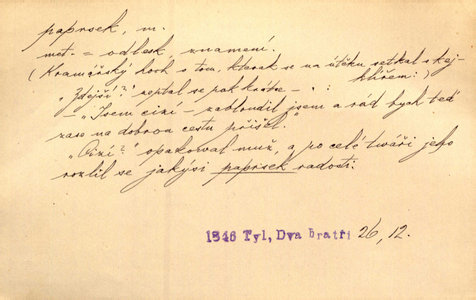 paprsek, m.
met. = odlesk, znamení.
(Kramářský hoch s tom, kterak se na útěku setkal s kej-
klířem:)
„Zdejší?" zeptal se pak krátce – . :
– „Jsem cizí – zabloudil jsem a rád bych teď
zase na dobrou cestu přišel."
„Cizí?" opakoval muž, a po celé tváři jeho
rozlil se jakýsi paprsek radosti.
1846 Tyl, Dva bratři 26, 12.